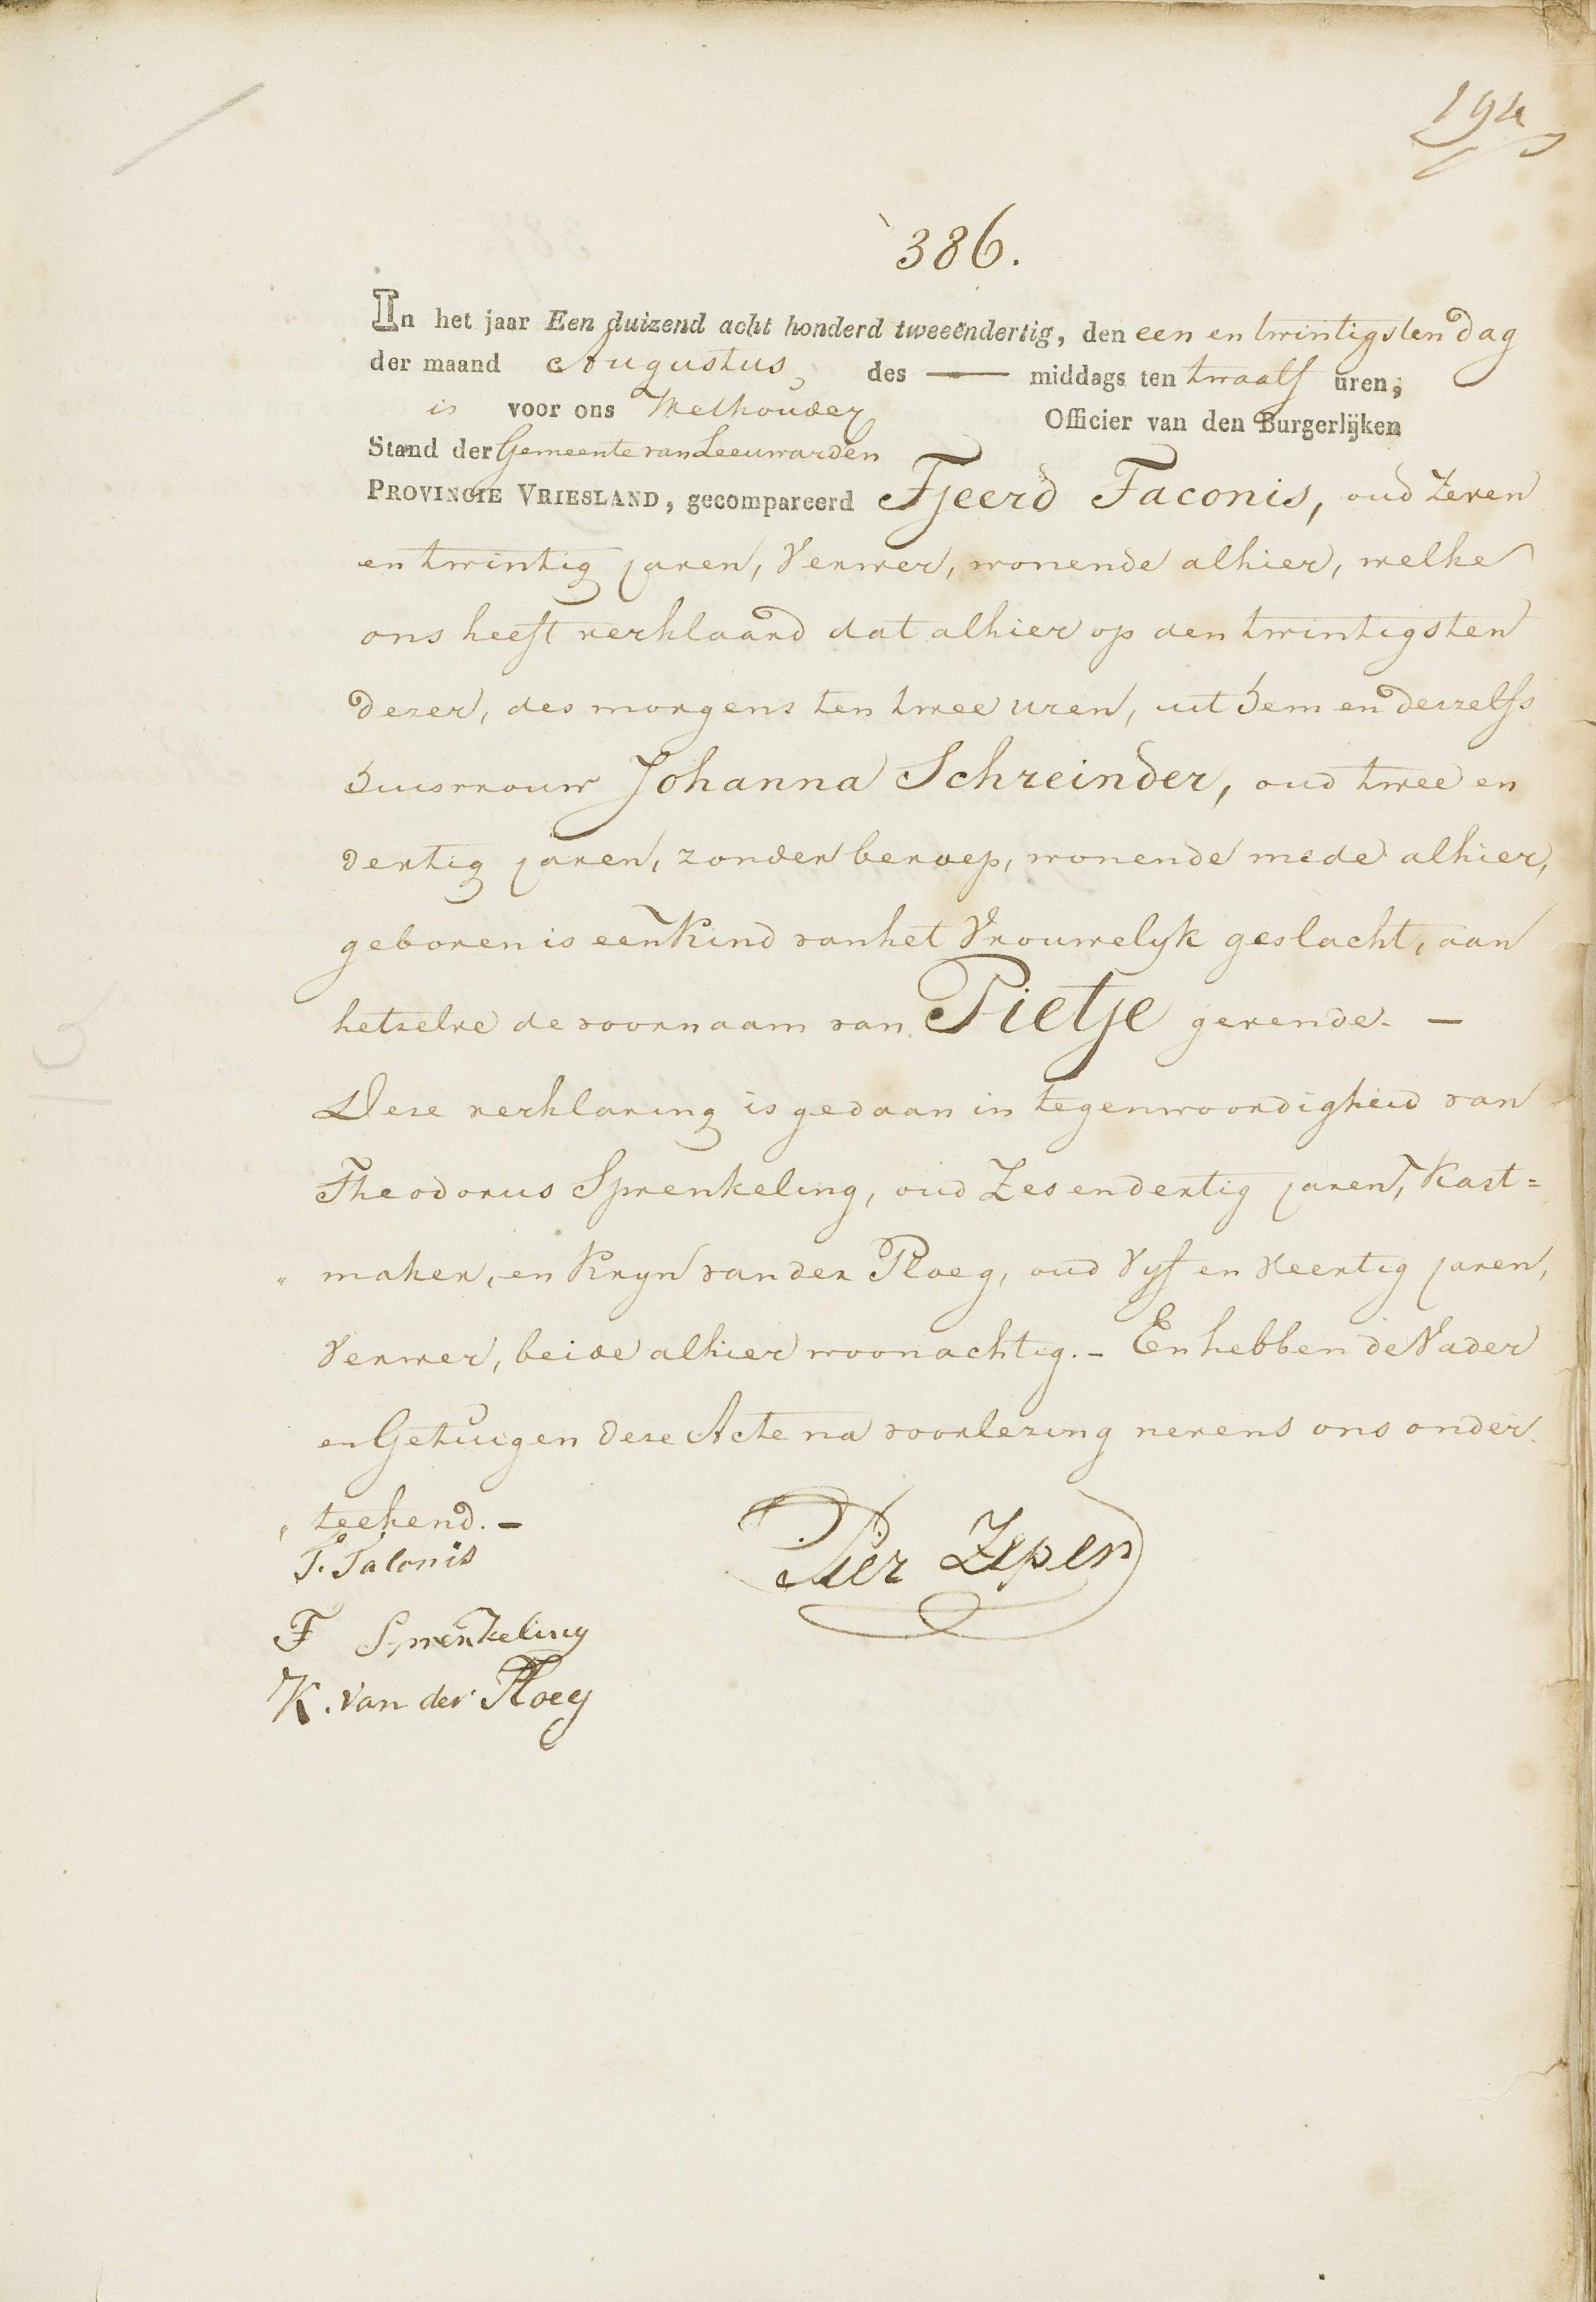 194
386.
In het jaar Een duizend acht honderd tweeëndertig, den een en twintigsten dag
der maand Augustus, des — middags ten twaalf uren,
is voor ons Wethouder Officier van den Burgerlijken
Stand der Gemeente van Leeuwarden
PROVINCIE VRIESLAND, gecompareerd Tjeerd Taconis, oud Zeven
en twintig jaren, Verwer, wonende alhier, welke
ons heeft verklaard dat alhier op den twintigsten
dezer, des morgens ten twee uren, uit hem en deszelfs
huisvrouw Johanna Schreinder, oud twee en
dertig jaren, zonder beroep, wonende mede alhier,
geboren is een Kind van het Vrouwelyk geslacht, aan
hetzelve de voornaam van Pietje gevende. —
Deze verklaring is gedaan in tegenwoordigheid van
Theodorus Sprenkeling, oud Zes en dertig jaren, Kast=
" maker, en Kryn van der Ploeg, oud Vyf en Veertig jaren,
Verwer, beide alhier woonachtig. – En hebben de Vader
en Getuigen deze Acte na voorlezing nevens ons onder
" teekend. –
T. Taconis
Pier Zepen
T Sprenkeling
K. van der Ploeg